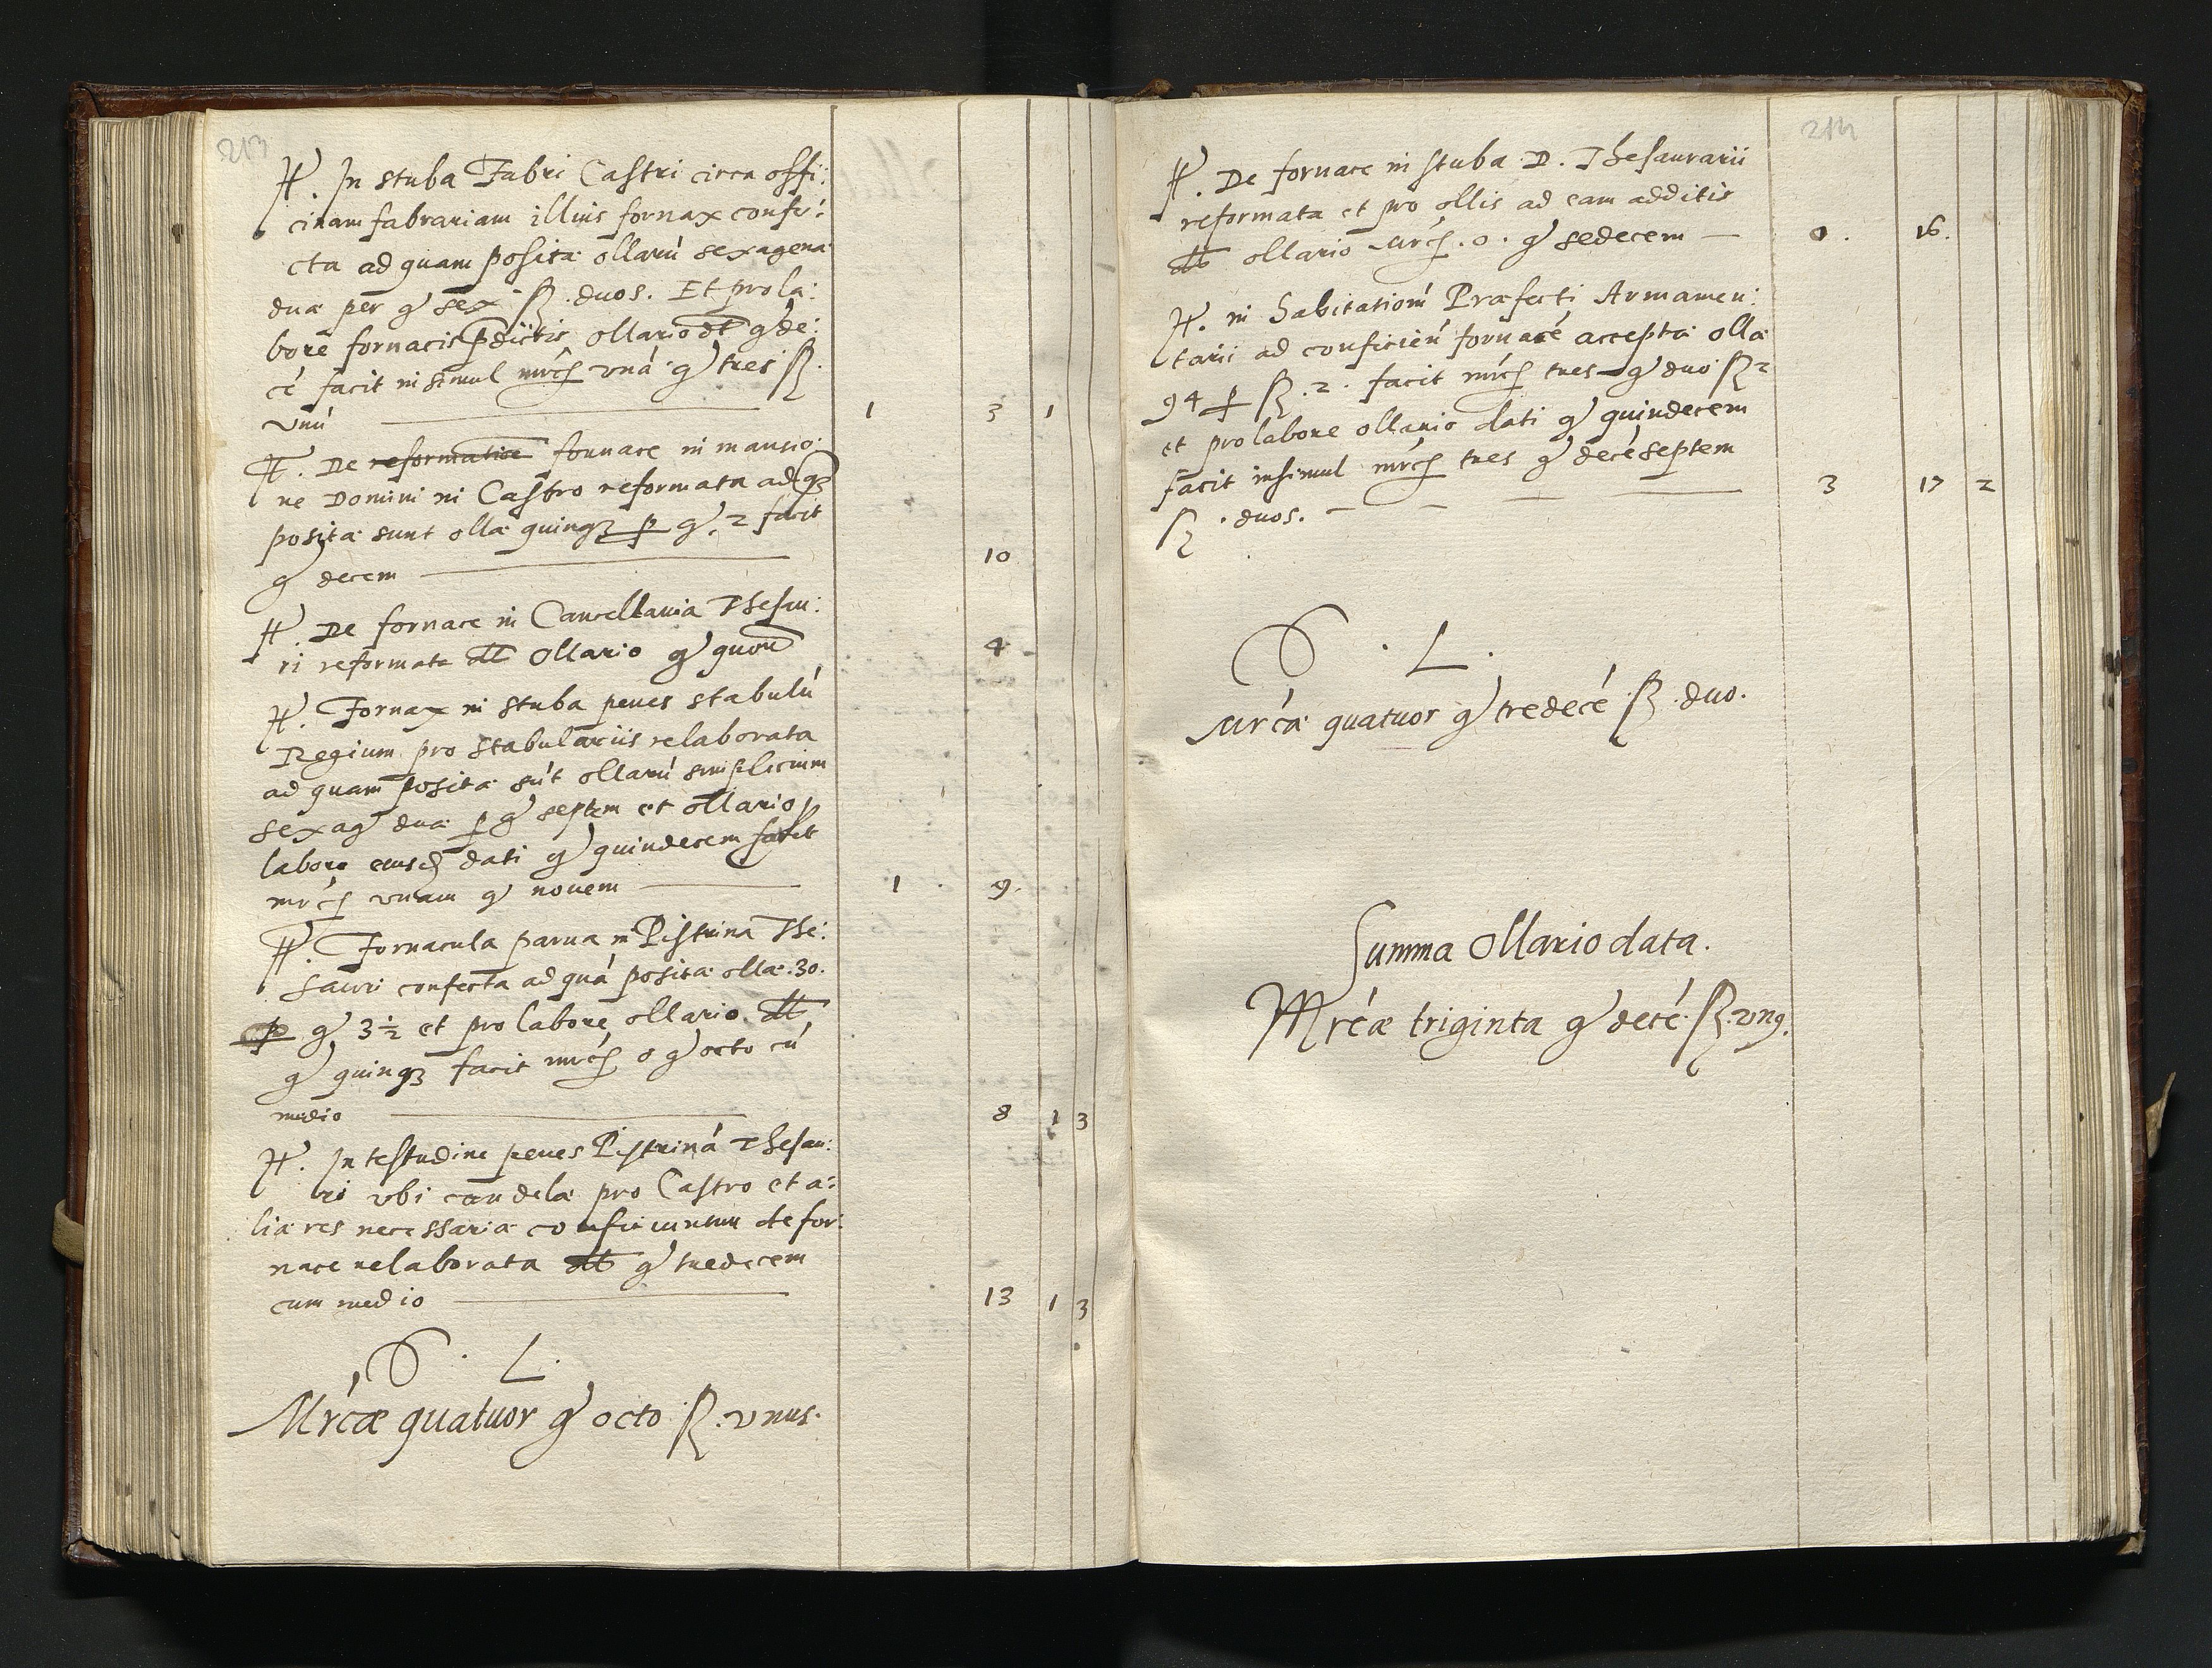 213
It. In stuba Fabri Castri circa offi:
cinam fabrariam illius fornax confe:
cta ad quam posita ollarú sexagena
dua per gͬ sex ß. duos. Et pro la:
bore fornacis pdictis ollario dt gͬ de:
cé facit in simul mrcę vná gͬ tres ß.
vnú 1 3 1
It. De reformatione fornace in mansio:
ne Domini in Castro reformata ad qͣ
posita sunt olla quinqꝫ ꝑ gͬ. 2 facit
gͬ decem 10
It. De fornace in Cancellaria Thesau:
ri reformata dt Ollario gͬ quatuor 4
It. Fornax in stuba penes stabulú
Regium pro stabulariis relaborata
ad quam posita sút ollarú simplicium
sexagͬ dua ꝑ gͬ septem et ollario p
labore eiusdę dati gͬ quindecem facit
mrcę vnam gͬ nouem 1 . 9.
It. Fornacula parua in Pistrina The:
sauri confecta ad quá posita olla .30.
ꝑ gͬ 3½ et pro labore ollario dt
gͬ quinqꝫ facit mrcę 0 gͬ octo cú
medio 8 1 3
It. In testudine penes Pistriná Thesau:
ri vbi candela pro Castro et a:
lia res necessaria conficiuntur de for:
nace relaborata dt gͬ tredecem
cum medio 13 1 3
S . L.
Mrcæ quatuor gͬ octo ß. vnus.
214
It. De fornace in stuba D. Thesaurarii
reformata et pro ollis ad eam additis
dt ollario Mrcę. 0. gͬ sedecem 0. 16.
It. in habitationi Præfecti Armamen:
tarii ad conficien fornacé accepta olla
94 ꝑ ß. 2. facit mrcę tres gͬ duo ß 2
et pro labore ollario dati gͬ quindecem
facit insimul mrcę tres gͬ decé septem
ß. duos. 3 17 2
S . L.
Mrca quatuor gͬ tredecé ß. duo.
Summa Ollario data.
Mrcæ triginta gͬ decé ß. vnꝰ.